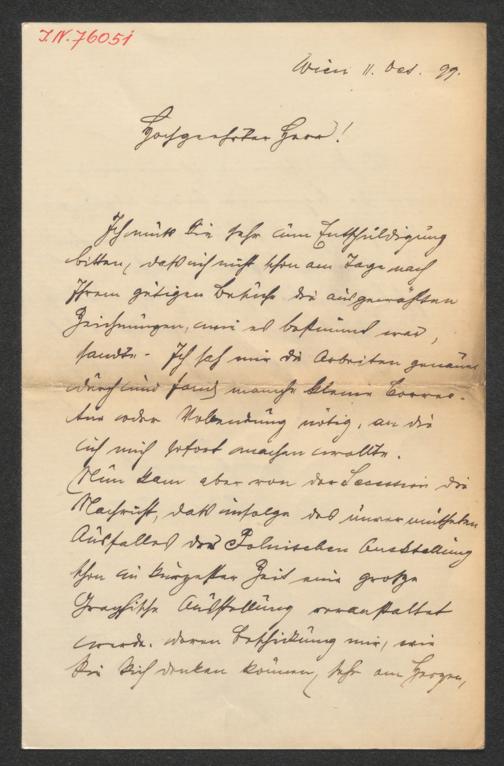 I.N. 76051
Wien 11. Oct. 99.
Hochgeehrter Herr!
Ich muß Sie sehr um Entschuldigung
bitten, daß ich nicht schon am Tage nach
Ihrem gütigen Besuche die ausgewählten
Zeichnungen, wie es bestimmt war,
sandte. Ich sah mir die Arbeiten genauer
durch und fand manche kleine Correc-
tur oder Vollendung nötig, an die
ich mich sofort machen wollte.
Nun kam aber von der Secession die
Nachricht, daß infolge des unvermutheten
Ausfalles der Polnischen Ausstellung
schon in kürzester Zeit eine große
Graphische Ausstellung veranstaltet
werde, deren Beschickung mir, wie
Sie sich denken können, sehr am Herzen,